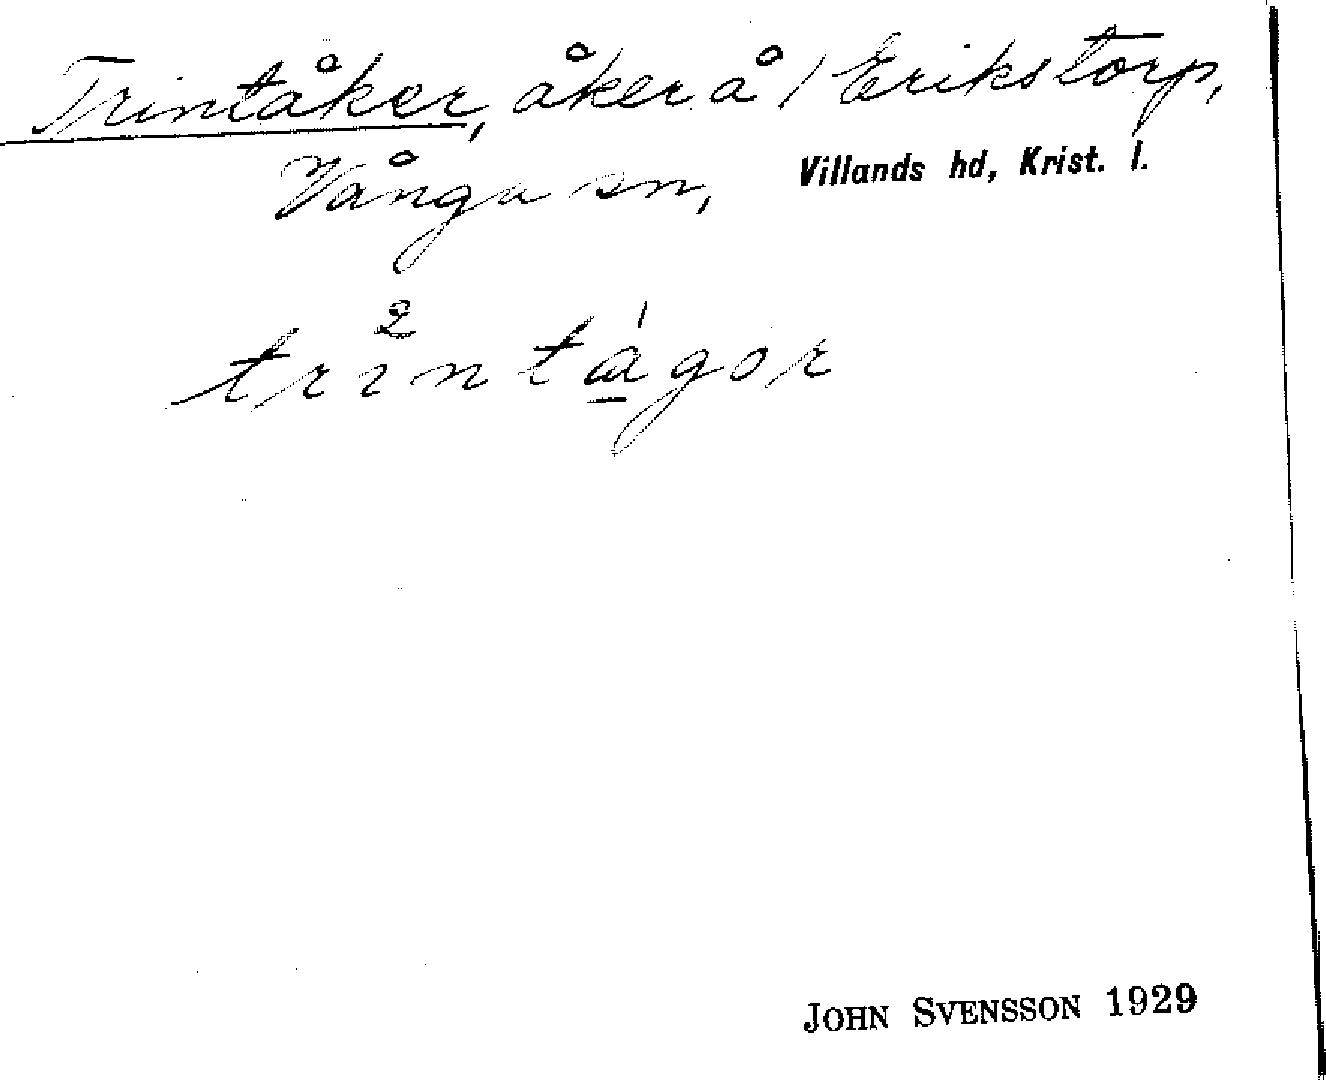 Trintåker, åker å / Erikstorp,
Vånga sn, Villands hd, Krist. l.
trintågor
JOHN SVENSSON 1929